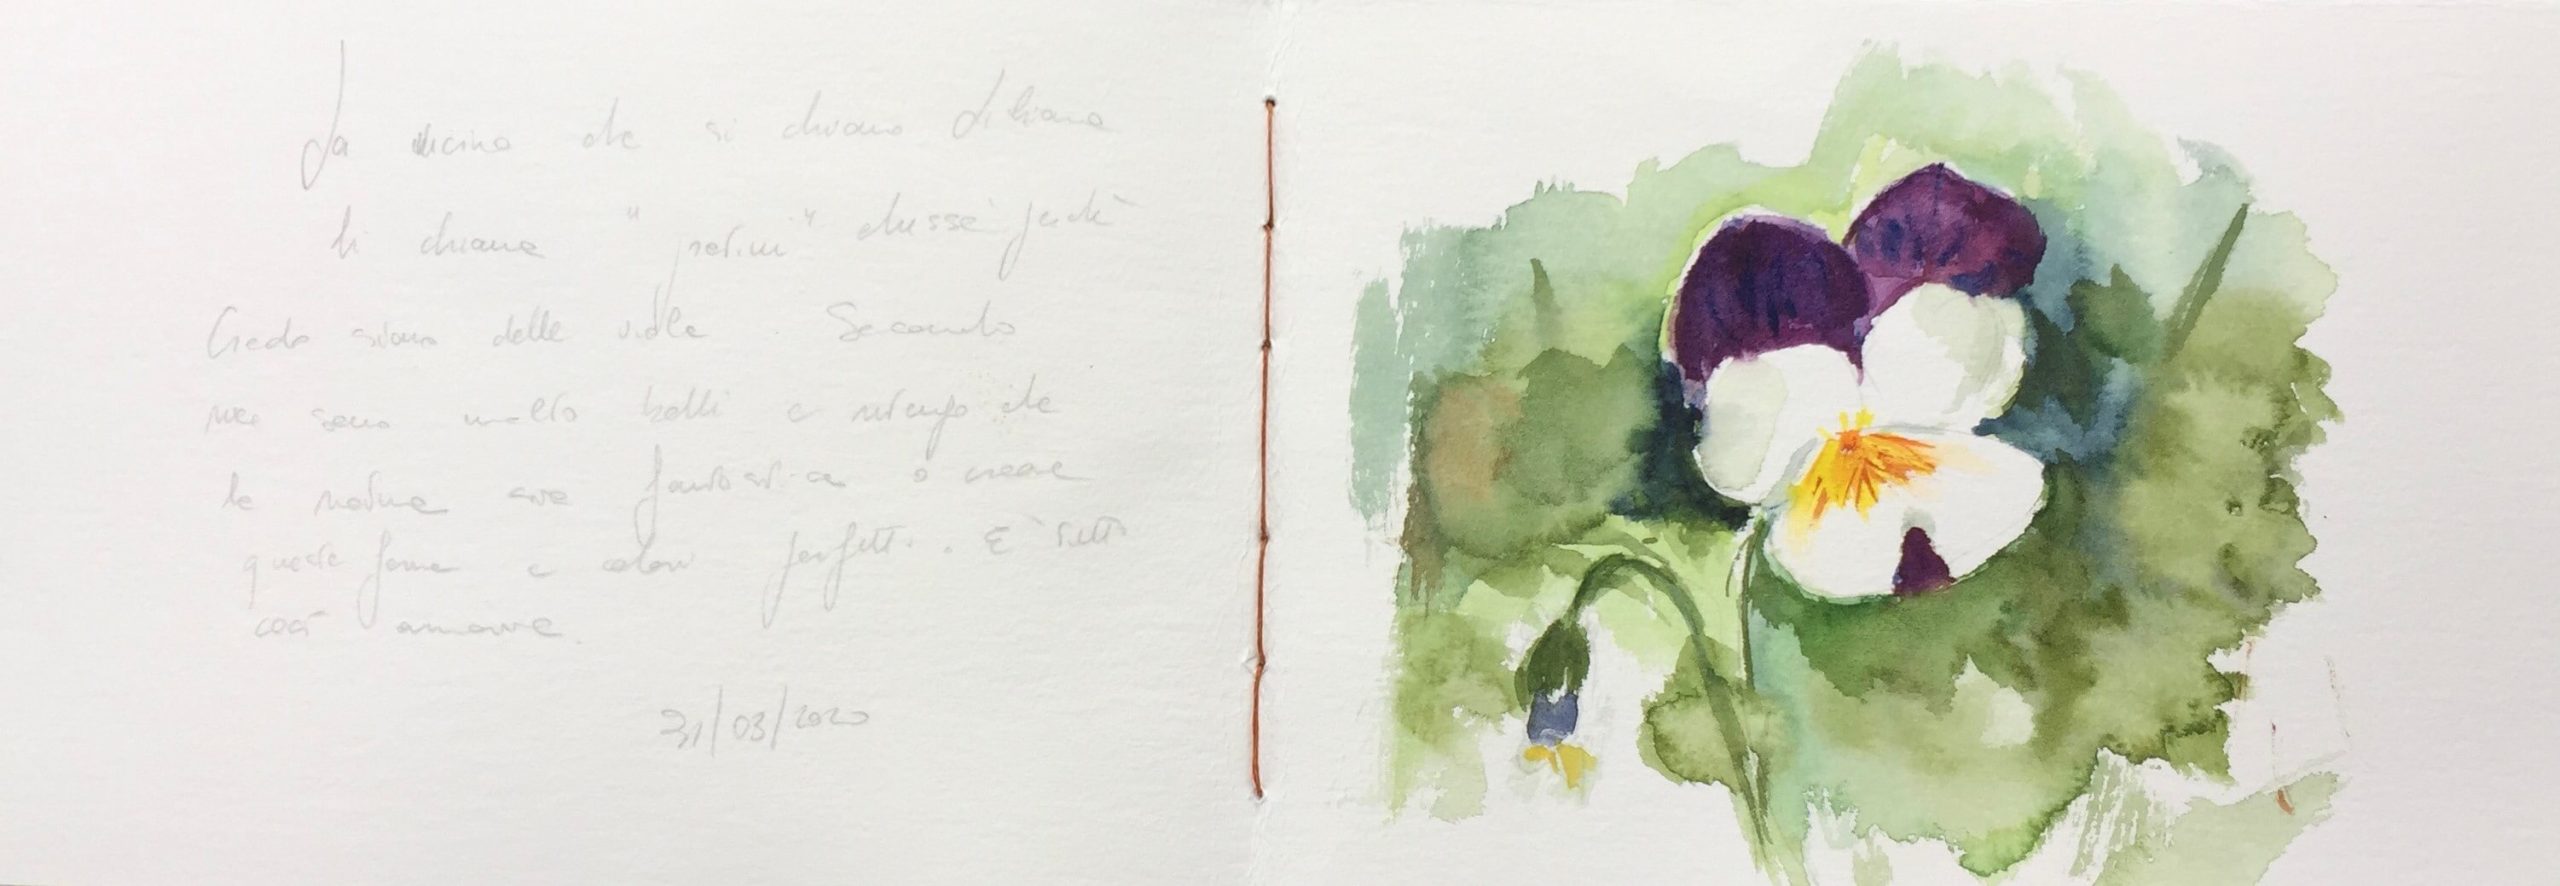 La vicina che si chiama Liliana
li chiama "pretini" chissà perché
Credo siano delle viole. Secondo
me sono molto belli e ritengo che
la natura sia fantastica a creare
queste forme e colori perfetti. È tutto
così armonie.
31/03/2020